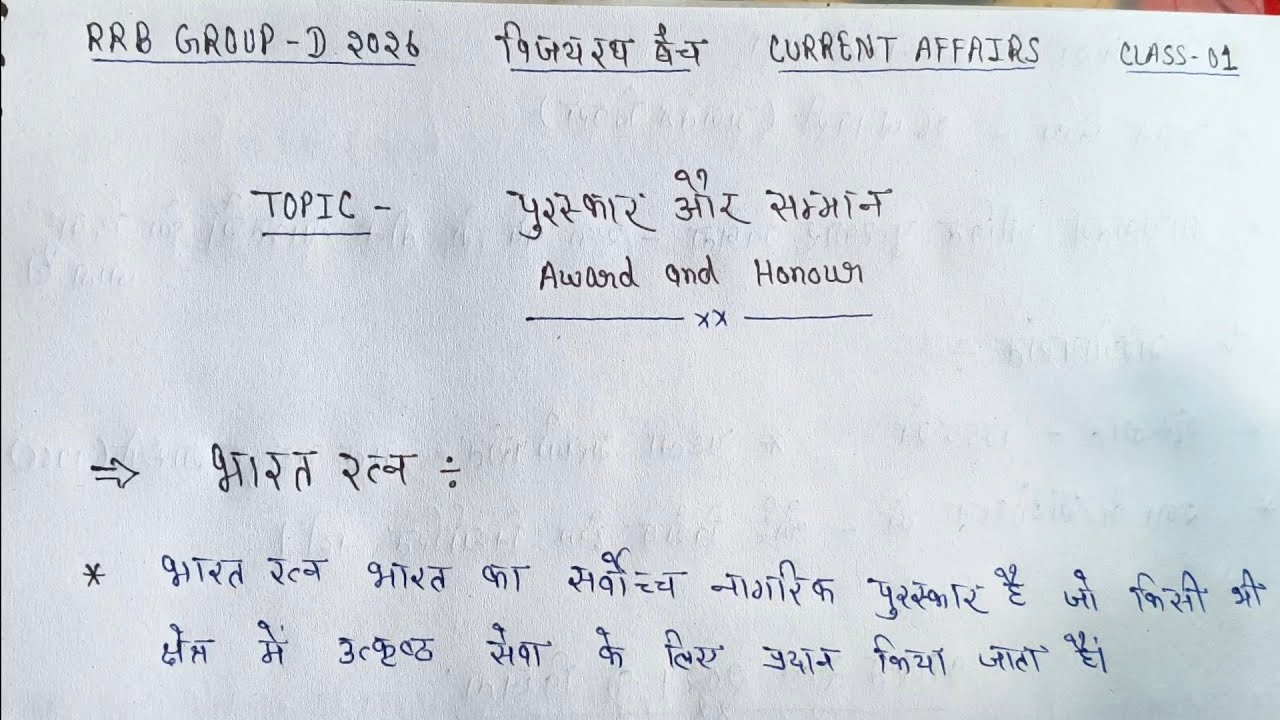 RRB GROUP-D 2026 विजयरथ बैच CURRENT AFFAIRS CLASS-01
TOPIC - पुरस्कार और सम्मान
Award and Honour
xx
⇒ भारत रत्न ÷
* भारत रत्न भारत का सर्वोच्च नागरिक पुरस्कार है जो किसी भी
क्षेत्र में उत्कृष्ठ सेवा के लिए प्रदान किया जाता है।